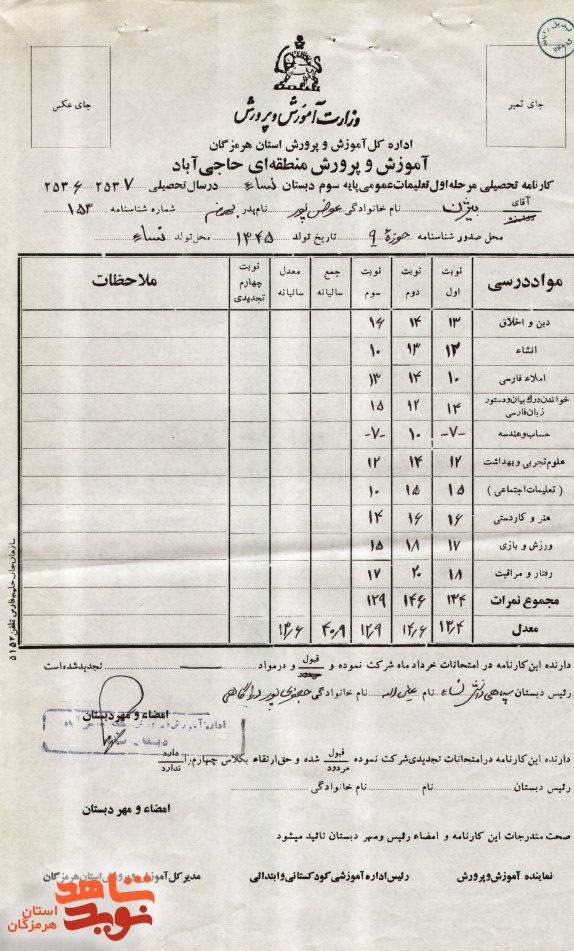 جای تمبر
جای عکس
وزارت آموزش و پرورش
اداره کل آموزش و پرورش استان هرمزگان
آموزش و پرورش منطقه‌ای حاجی آباد
کارنامه تحصیلی مرحله اول تعلیمات عمومی پایه سوم دبستان نساء در سال تحصیلی ۲۵۳۷ ۲۵۳۶
آقای بیژن نام خانوادگی عوض پور نام پدر بهمن شماره شناسنامه ۱۵۳
محل صدور شناسنامه حوزهٔ ۹ تاریخ تولد ۱۳۴۵ محل تولد نساء
مواد درسی نوبت اول نوبت دوم نوبت سوم جمع سالیانه معدل سالیانه نوبت چهارم تجدیدی ملاحظات
دین و اخلاق ۱۳ ۱۴ ۱۶
انشاء ۱۲ ۱۳ ۱۰
املاء فارسی ۱۰ ۱۴ ۱۳
خواندن درک بیان و دستور زبان فارسی ۱۴ ۱۲ ۱۵
حساب و هندسه -۷- ۱۰ -۷-
علوم تجربی و بهداشت ۱۲ ۱۴ ۱۲
( تعلیمات اجتماعی ) ۱۵ ۱۵ ۱۰
هنر و کاردستی ۱۶ ۱۶ ۱۴
ورزش و بازی ۱۷ ۱۸ ۱۵
رفتار و مراقبت ۱۸ ۲۰ ۱۷
مجموع نمرات ۱۳۴ ۱۴۶ ۱۲۹
معدل ۱۳,۴ ۱۴,۶ ۱۲,۹ ۴۰,۹ ۱۳,۶
دارنده این کارنامه در امتحانات خرداد ماه شرکت نموده و قبول و در مواد تجدید شده است
رئیس دبستان سپاهی دانش نساء نام نام خانوادگی
امضاء و مهر دبستان
دارنده این کارنامه در امتحانات تجدیدی شرکت نموده قبول مردود شده و حق ارتقاء بکلاس چهارم را دارد ندارد
رئیس دبستان نام نام خانوادگی
امضاء و مهر دبستان
صحت مندرجات این کارنامه و امضاء رئیس ومهر دبستان تائید میشود
نماینده آموزش و پرورش رئیس اداره آموزشی کودکستانی و ابتدائی مدیر کل آموزش و پرورش استان هرمزگان
نوید شاهد
استان هرمزگان